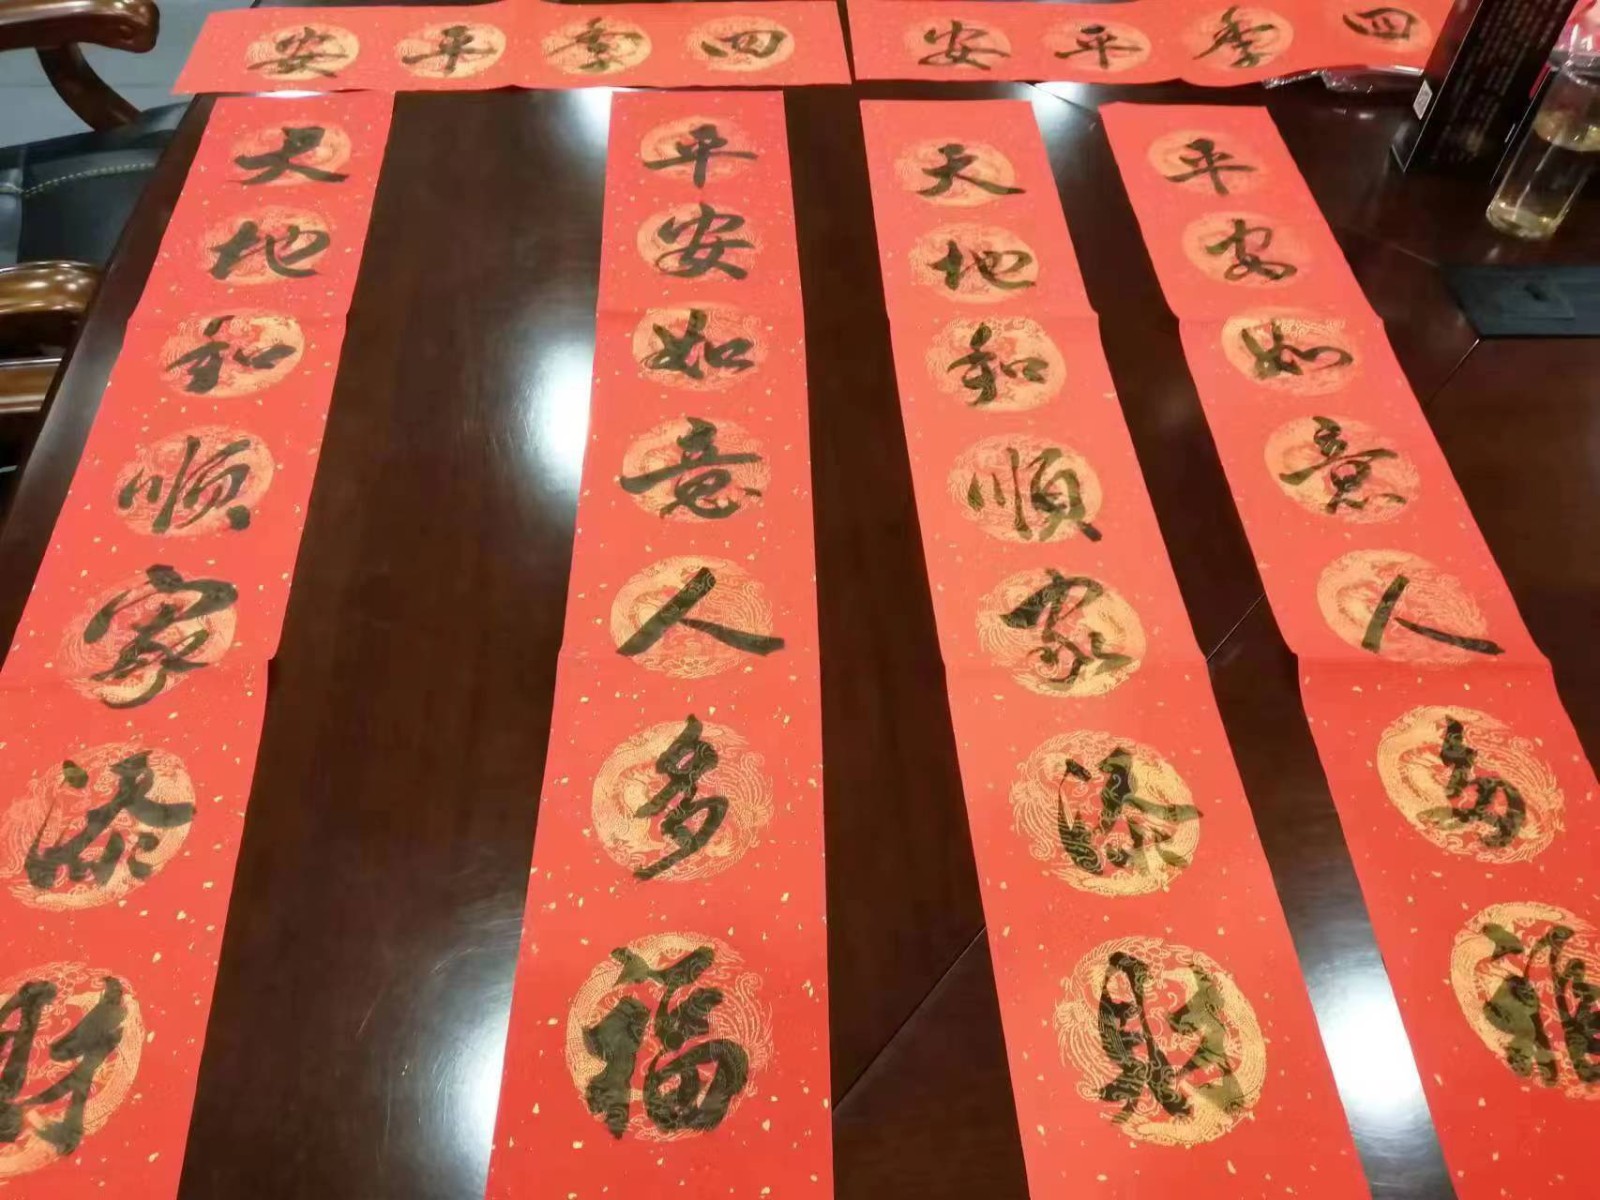 四季平安
四季平安
天地和顺家添财
平安如意人多福
天地和順家添财
平安如意人多福